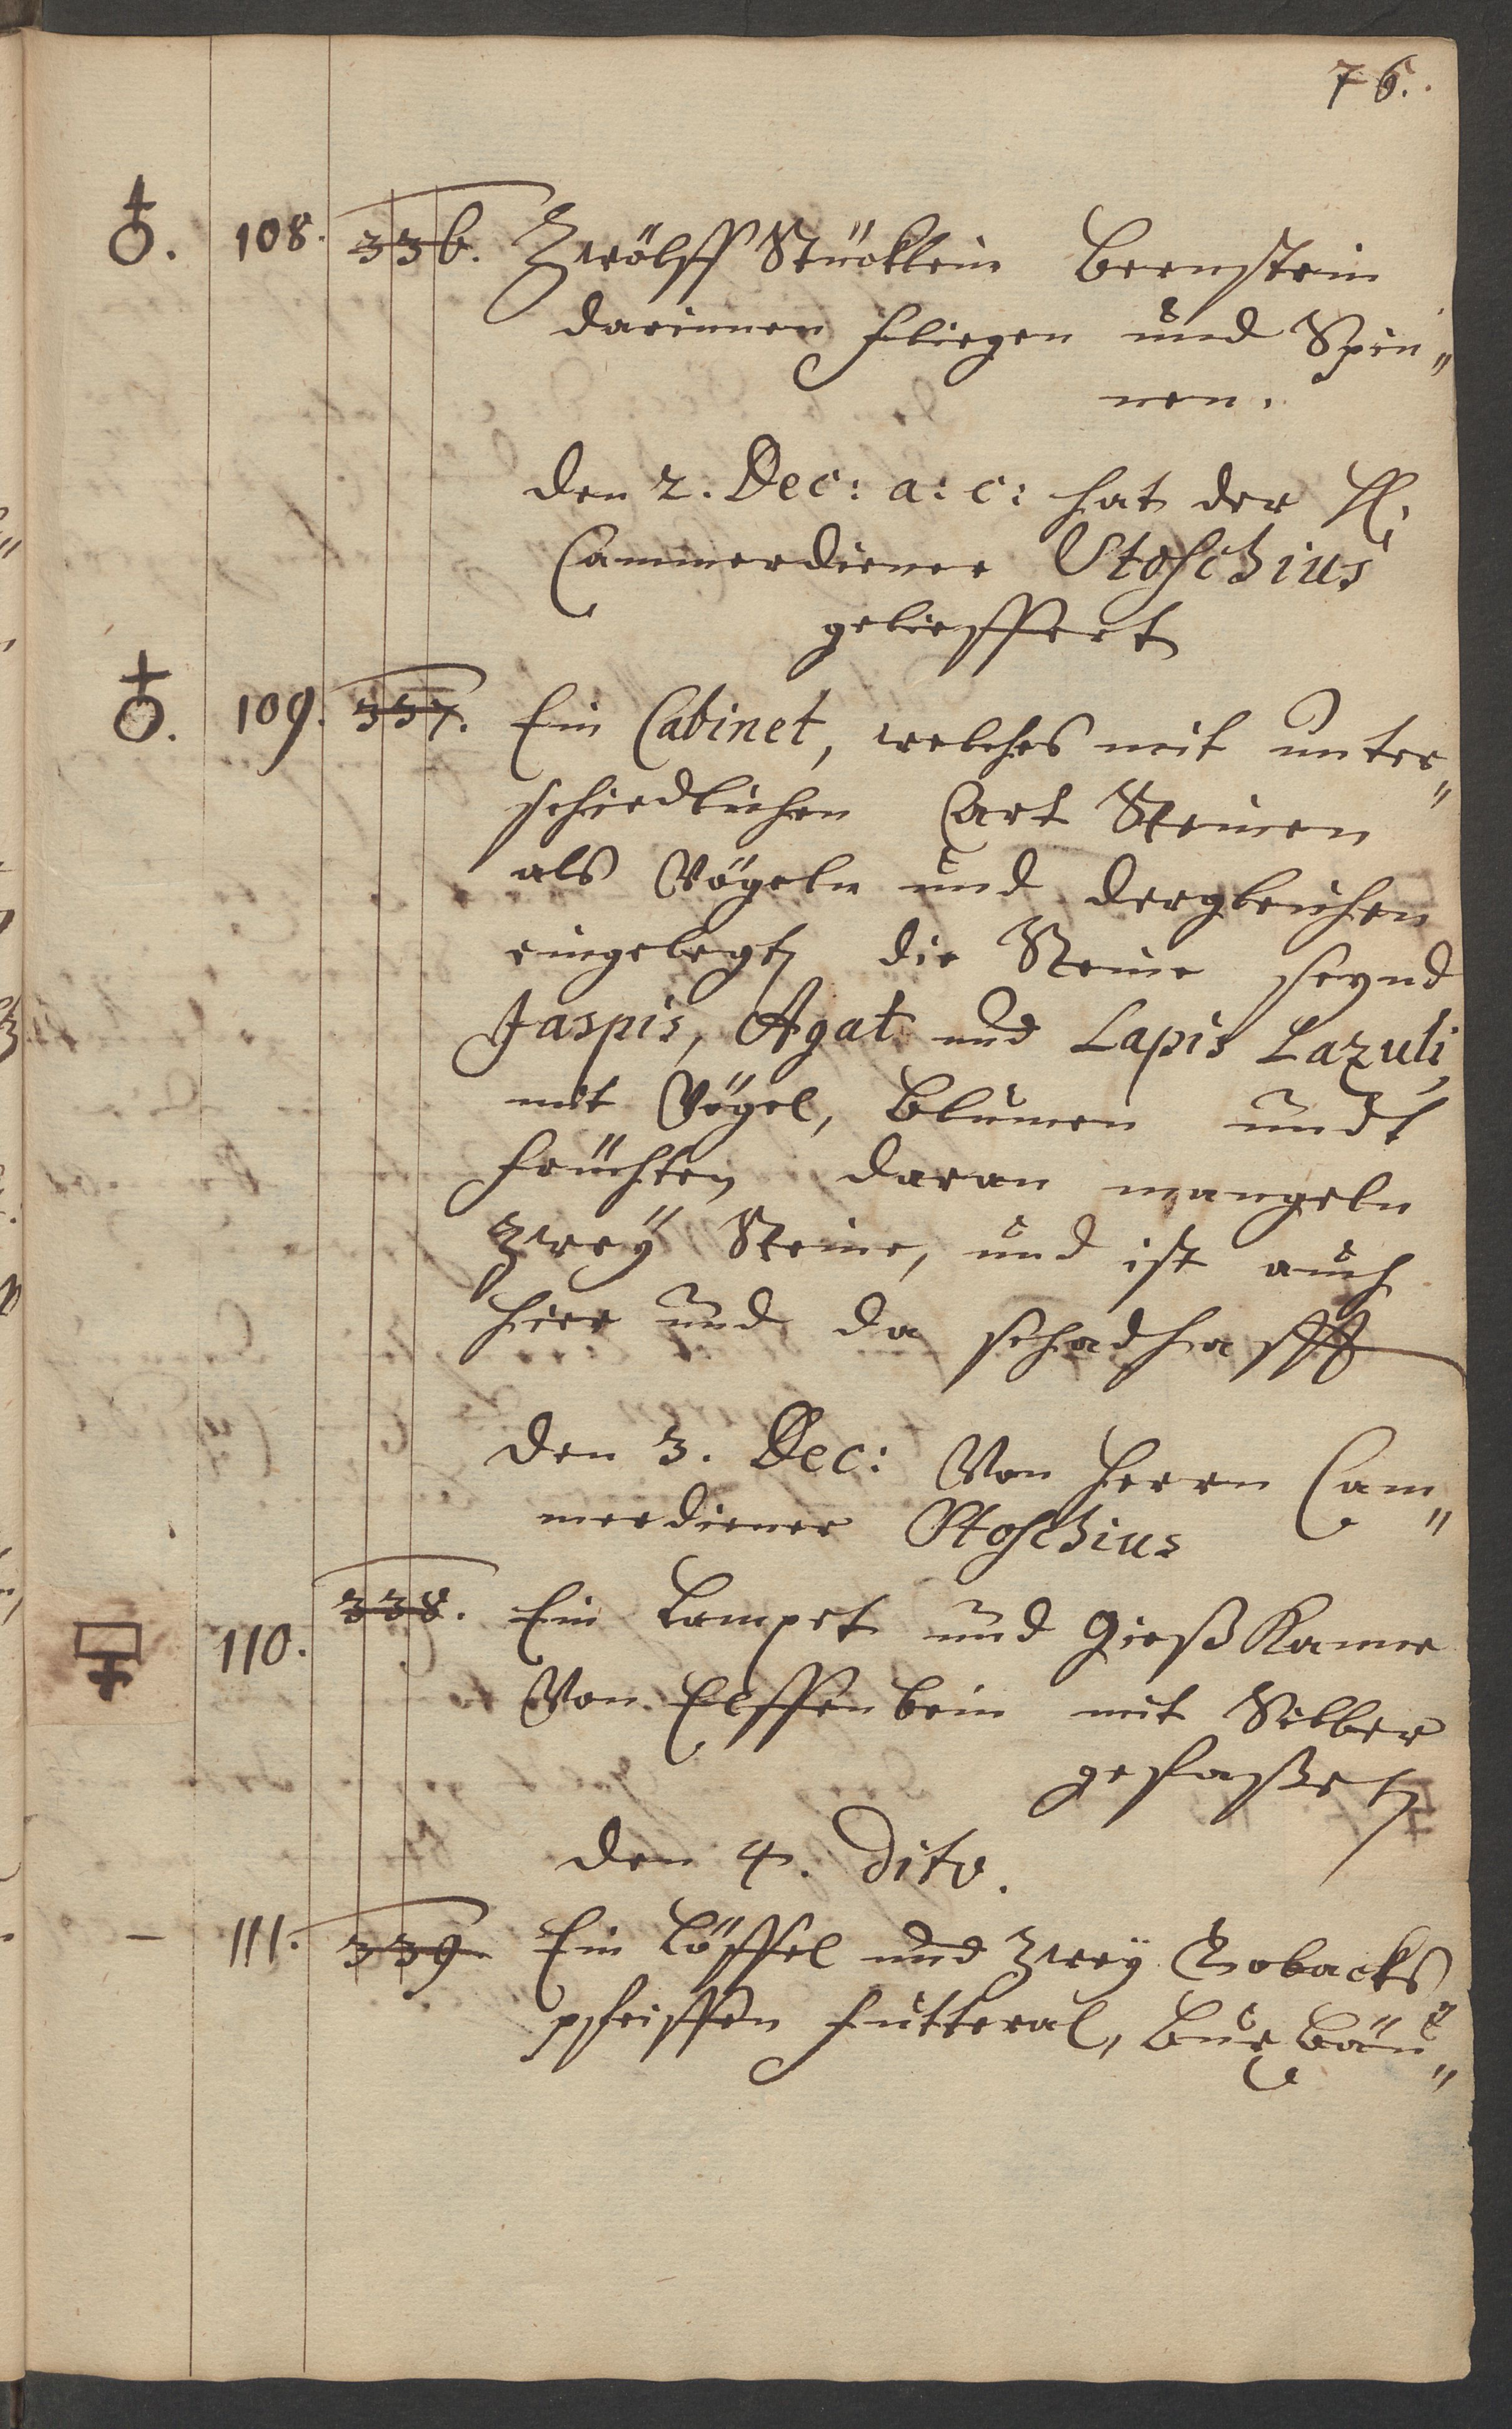 76.
♁. 108. 336. Zwölff Stücklein Bernstein
darinnen Fliegen und Spin„
nen.
den 2. Dec: a: c: hat der H.
Cammerdiener Stoschius
gelieffert
♁. 109. 337. Ein Cabinet, welches mit unter„
schiedlichen Cart Steinen
als Vögeln und dergleichen
eingelegt, die Steine seynd
Jaspis, Agat und Lapis Lazuli,
mit Vögel, Blumen undt
Früchten, daran mangeln
zweÿ Steine, und ist auch
hier und da schadhafft
den 3. Dec: Von Herrn Cam„
merdiener Stoschius
110. 338. Ein Lampet und Gieß Kanne
Von Elffenbein mit Silber
gefasset,
den 4. dito.
– 111. 339. Ein Löffel und zweÿ Tobacks
pfeiffen Futteral, Buxbäu„